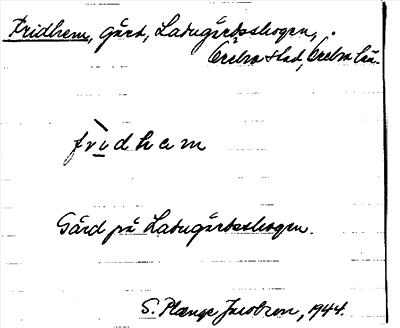 Fridhem, gård, Ladugårdsskogen,
Örebro stad, Örebro län.
fri̲dhem
Gård på Ladugårdsskogen.
S. Plænge Jacobson, 1944.